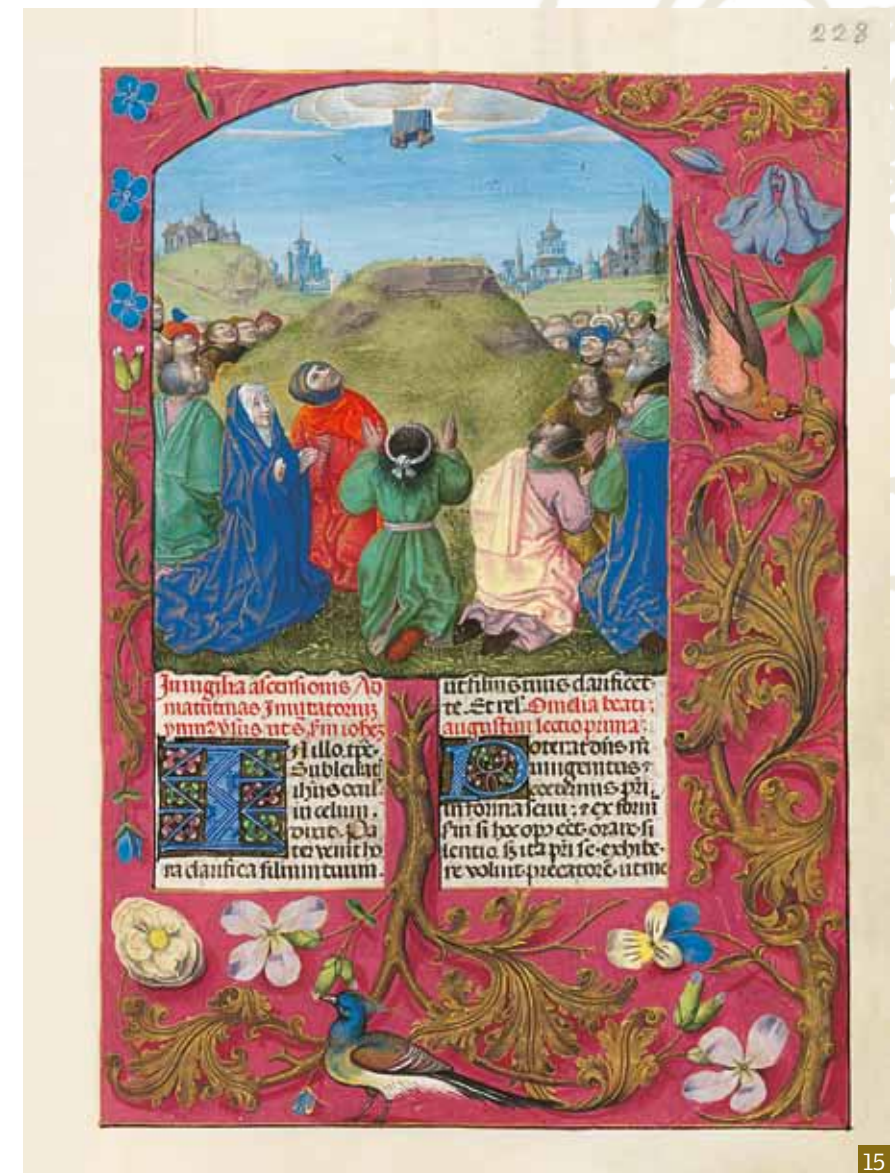 228
In uigilia ascensionis Ad
matutinas Inuitatoriuz
ut s. Sm iohez
In illo tpe.
Subleuat
ihus ocul
in celum.
dixit. Pa
ter venit ho
ra clarifica filium tuum.
ut filius tuus clarificet
te. Et rel. Omelia beati
augustini lectio prima
Poterat dns nr
unigenitus
coeternus pri
in forma serui: ex form
si hoc eet. orare si
lentio ita pri se exhibe
re voluit precatore. ut me
15